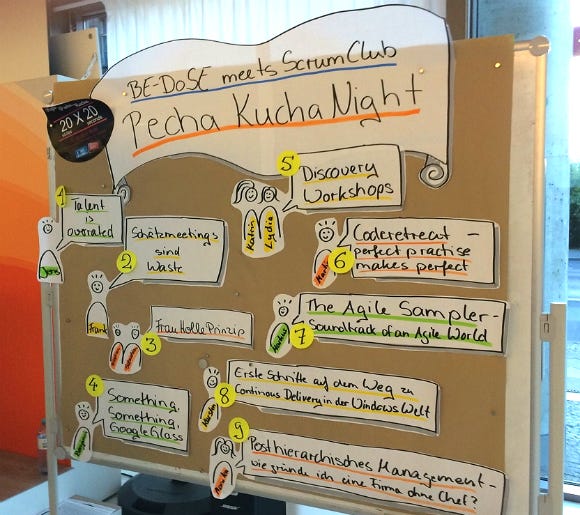 BE-DoSE meets ScrumClub
Pecha Kucha Night
20 X 20
1
Talent
is
overrated
Jens
2
Schätzmeetings
sind
Waste
Frank
3
Frau Holle Prinzip
4
Something,
Something,
Google Glass
5
Discovery
Workshops
Katrin
Lydia
6
Coderetreat -
perfect practise
makes perfect
7
The Agile Sampler -
Soundtrack of an Agile World
Markus
8
Erste Schritte auf dem Weg zu
Continous Delivery in der Windows Welt
9
Posthierarchisches Management -
wie gründe ich eine Firma ohne Chef?